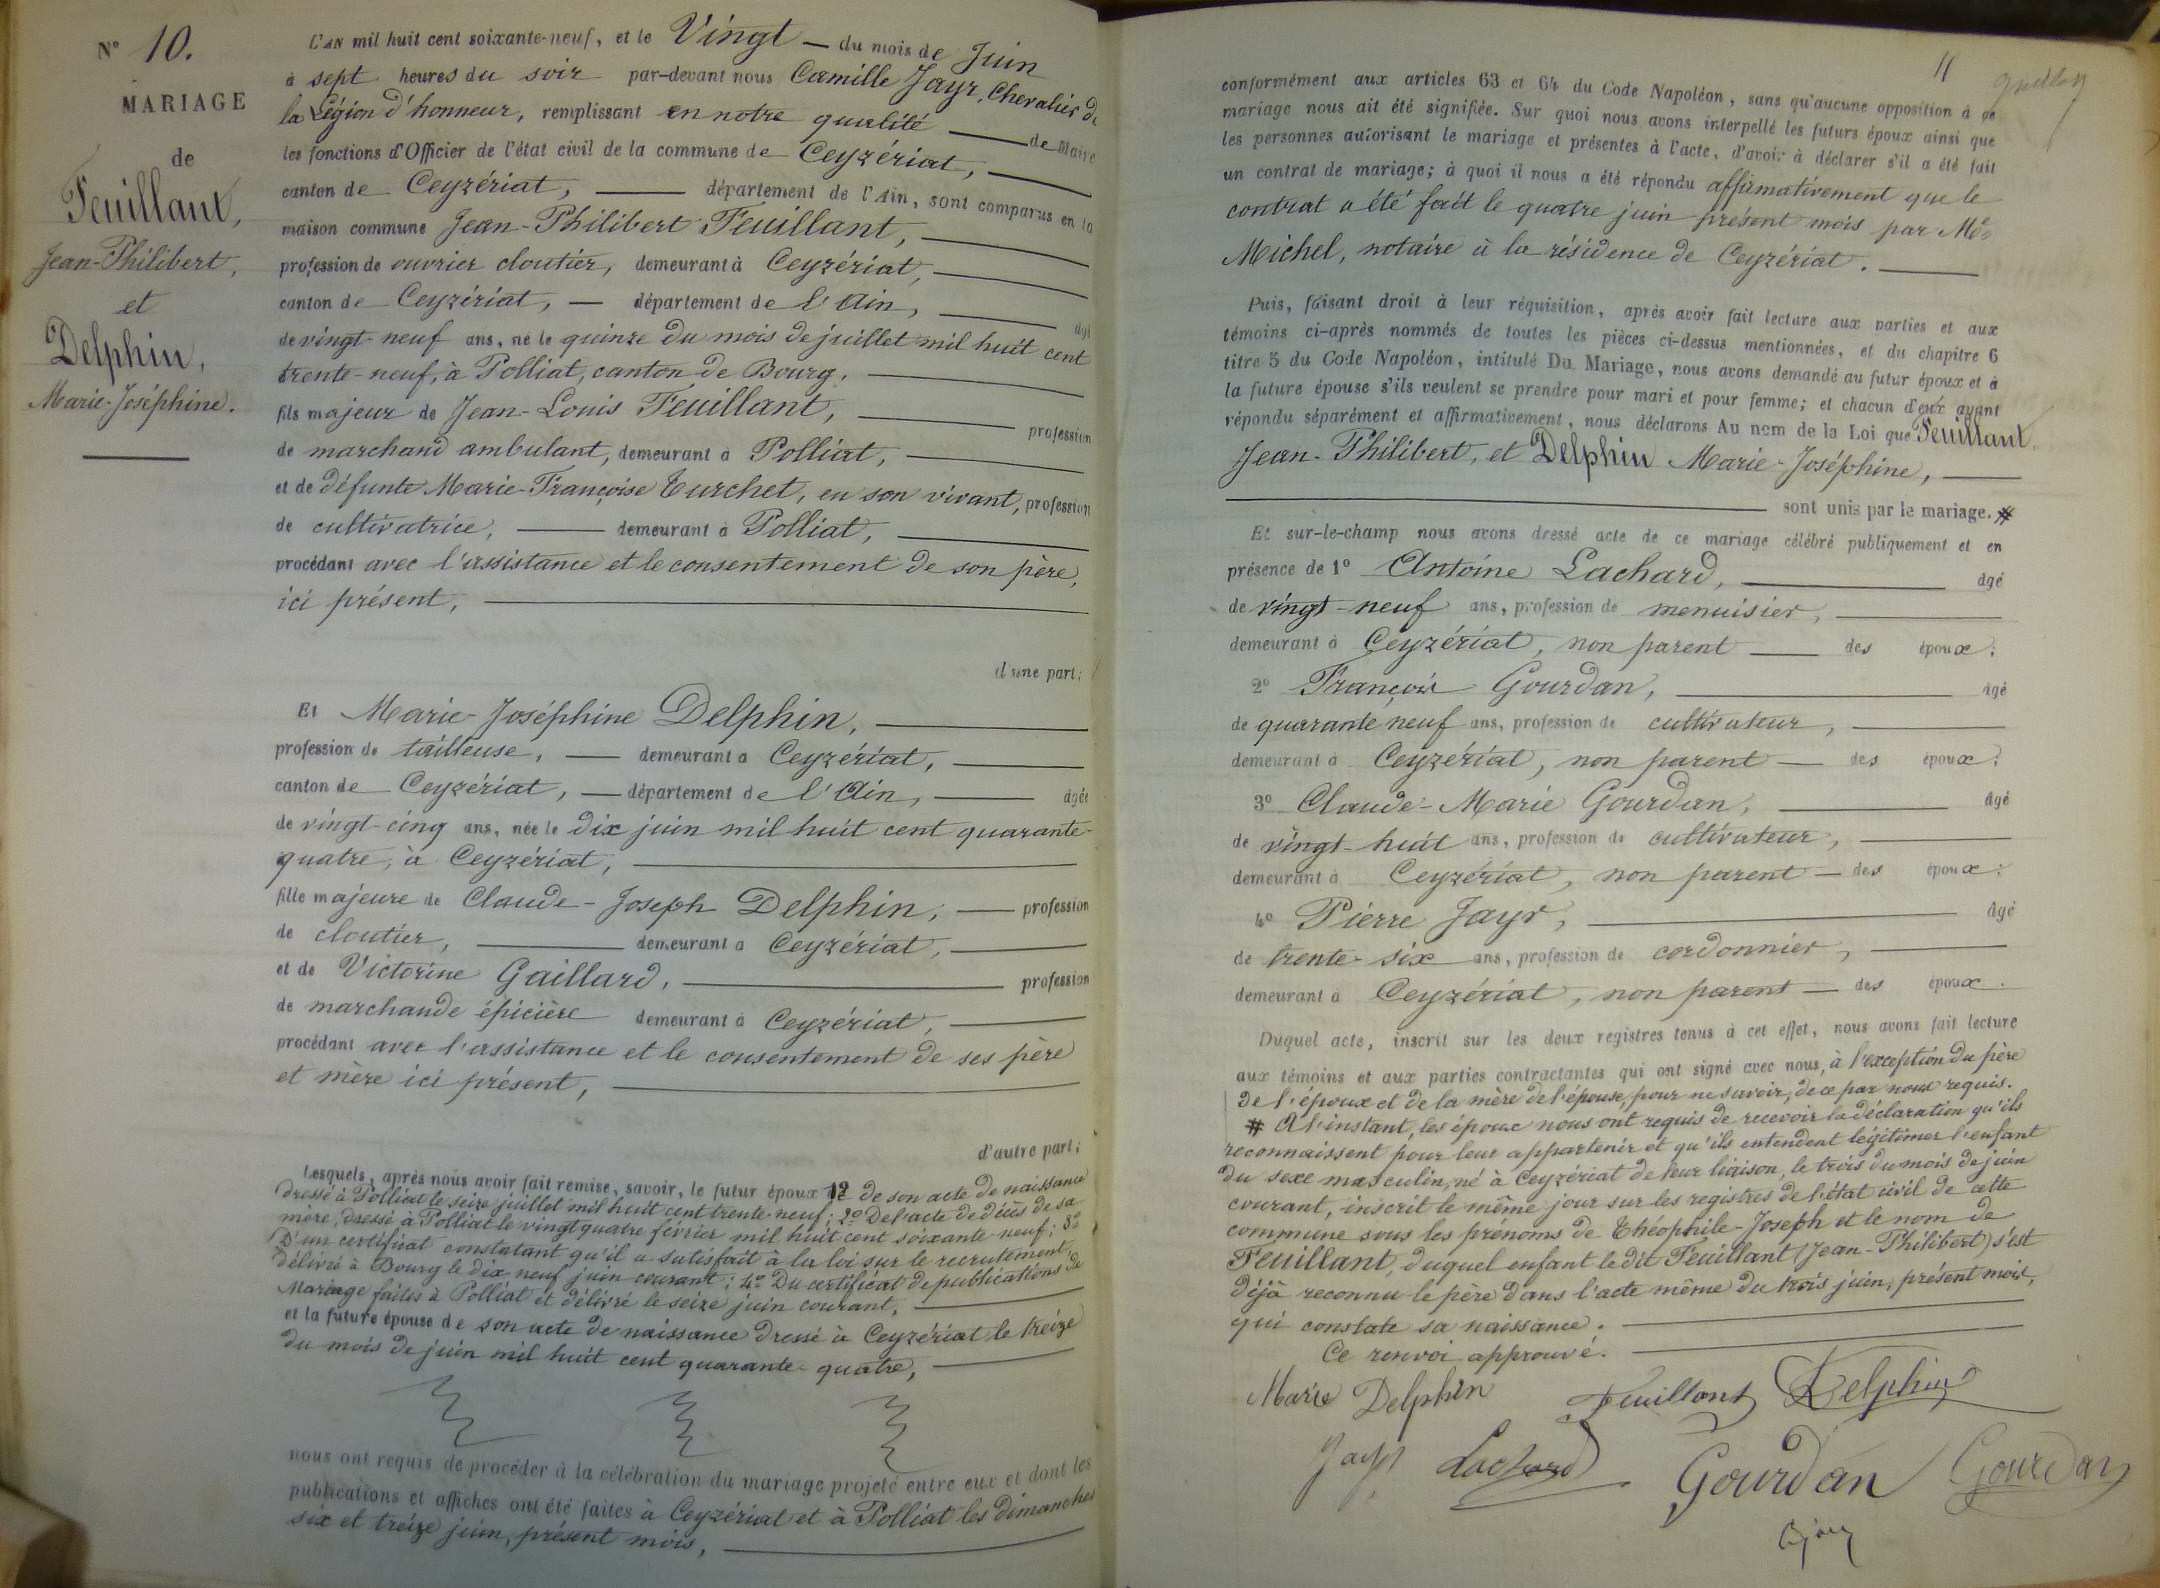 N° 10.
MARIAGE
de
Feuillant,
Jean-Philibert,
et
Delphin,
Marie-Joséphine.
L'AN mil huit cent soixante-neuf, et le Vingt — du mois de Juin
à sept heures du soir par-devant nous Camille Jayr, Chevalier de
la Légion d'honneur, remplissant en notre qualité — de Maire
les fonctions d'Officier de l'état civil de la commune de Ceyzériat, —
canton de Ceyzériat, — département de l'Ain, sont comparus en la
maison commune Jean-Philibert Feuillant, —
profession de ouvrier cloutier, demeurant à Ceyzériat, —
canton de Ceyzériat, — département de l'Ain, — âgé
de vingt-neuf ans, né le quinze du mois de juillet mil huit cent
trente-neuf, à Polliat, canton de Bourg, —
fils majeur de Jean-Louis Feuillant, — profession
de marchand ambulant, demeurant à Polliat, —
et de défunte Marie-Françoise Turchet, en son vivant, profession
de cultivatrice, — demeurant à Polliat, —
procédant avec l'assistance et le consentement de son père,
ici présent, —
d'une part;
Et Marie-Joséphine Delphin, —
profession de tailleuse, — demeurant à Ceyzériat, —
canton de Ceyzériat, — département de l'Ain, — âgée
de vingt-cinq ans, née le dix juin mil huit cent quarante-
quatre, à Ceyzériat, —
fille majeure de Claude-Joseph Delphin, — profession
de cloutier, — demeurant à Ceyzériat, —
et de Victorine Gaillard, — profession
de marchande épicière demeurant à Ceyzériat, —
procédant avec l'assistance et le consentement de ses père
et mère ici présent, —
d'autre part;
Lesquels, après nous avoir fait remise, savoir, le futur époux 1° de son acte de naissance
dressé à Polliat le seize juillet mil huit cent trente-neuf; 2° De l'acte de décès de sa
mère, dressé à Polliat le vingt quatre février mil huit cent soixante-neuf; 3°
D'un certificat constatant qu'il a satisfait à la loi sur le recrutement,
délivré à Bourg le dix neuf juin courant; 4° Du certificat de publications de
Mariage faites à Polliat et délivré le seize juin courant, —
et la future épouse de son acte de naissance dressé à Ceyzériat le treize
du mois de juin mil huit cent quarante-quatre, —
nous ont requis de procéder à la célébration du mariage projeté entre eux et dont les
publications et affiches ont été faites à Ceyzériat et à Polliat les dimanches
six et treize juin, présent mois, —
conformément aux articles 63 et 64 du Code Napoléon, sans qu'aucune opposition à ce
mariage nous ait été signifiée. Sur quoi nous avons interpellé les futurs époux ainsi que
les personnes autorisant le mariage et présentes à l'acte, d'avoir à déclarer s'il a été fait
un contrat de mariage; à quoi il nous a été répondu affirmativement que le
contrat a été fait le quatre juin présent mois par Me
Michel, notaire à la résidence de Ceyzériat. —
Puis, faisant droit à leur réquisition, après avoir fait lecture aux parties et aux
témoins ci-après nommés de toutes les pièces ci-dessus mentionnées, et du chapitre 6
titre 5 du Code Napoléon, intitulé Du Mariage, nous avons demandé au futur époux et à
la future épouse s'ils veulent se prendre pour mari et pour femme; et chacun d'eux ayant
répondu séparément et affirmativement, nous déclarons Au nom de la Loi que Feuillant,
Jean-Philibert, et Delphin Marie-Joséphine, —
— sont unis par le mariage. #
Et sur-le-champ nous avons dressé acte de ce mariage célébré publiquement et en
présence de 1° Antoine Lachard, — âgé
de vingt-neuf ans, profession de menuisier, —
demeurant à Ceyzériat, non parent — des époux;
2° François Gourdan, — âgé
de quarante neuf ans, profession de cultivateur, —
demeurant à Ceyzériat, non parent — des époux;
3° Claude-Marie Gourdan, — âgé
de vingt-huit ans, profession de cultivateur, —
demeurant à Ceyzériat, non parent — des époux;
4° Pierre Jayr, — âgé
de trente-six ans, profession de cordonnier, —
demeurant à Ceyzériat, non parent — des époux.
Duquel acte, inscrit sur les deux registres tenus à cet effet, nous avons fait lecture
aux témoins et aux parties contractantes qui ont signé avec nous, à l'exception du père
de l'époux et de la mère de l'épouse, pour ne savoir, de ce par nous requis.
# A l'instant, les époux nous ont requis de recevoir la déclaration qu'ils
reconnaissent pour leur appartenir et qu'ils entendent légitimer l'enfant
du sexe masculin, né à Ceyzériat de leur liaison, le trois du mois de juin
courant, inscrit le même jour sur les registres de l'état civil de cette
commune sous les prénoms de Théophile-Joseph et le nom de
Feuillant, duquel enfant le dit Feuillant (Jean-Philibert) s'est
déjà reconnu le père dans l'acte même du trois juin, présent mois,
qui constate sa naissance. —
Ce renvoi approuvé. —
Marie Delphin Feuillant Delphin
Jayr Lachard Gourdan Gourdan